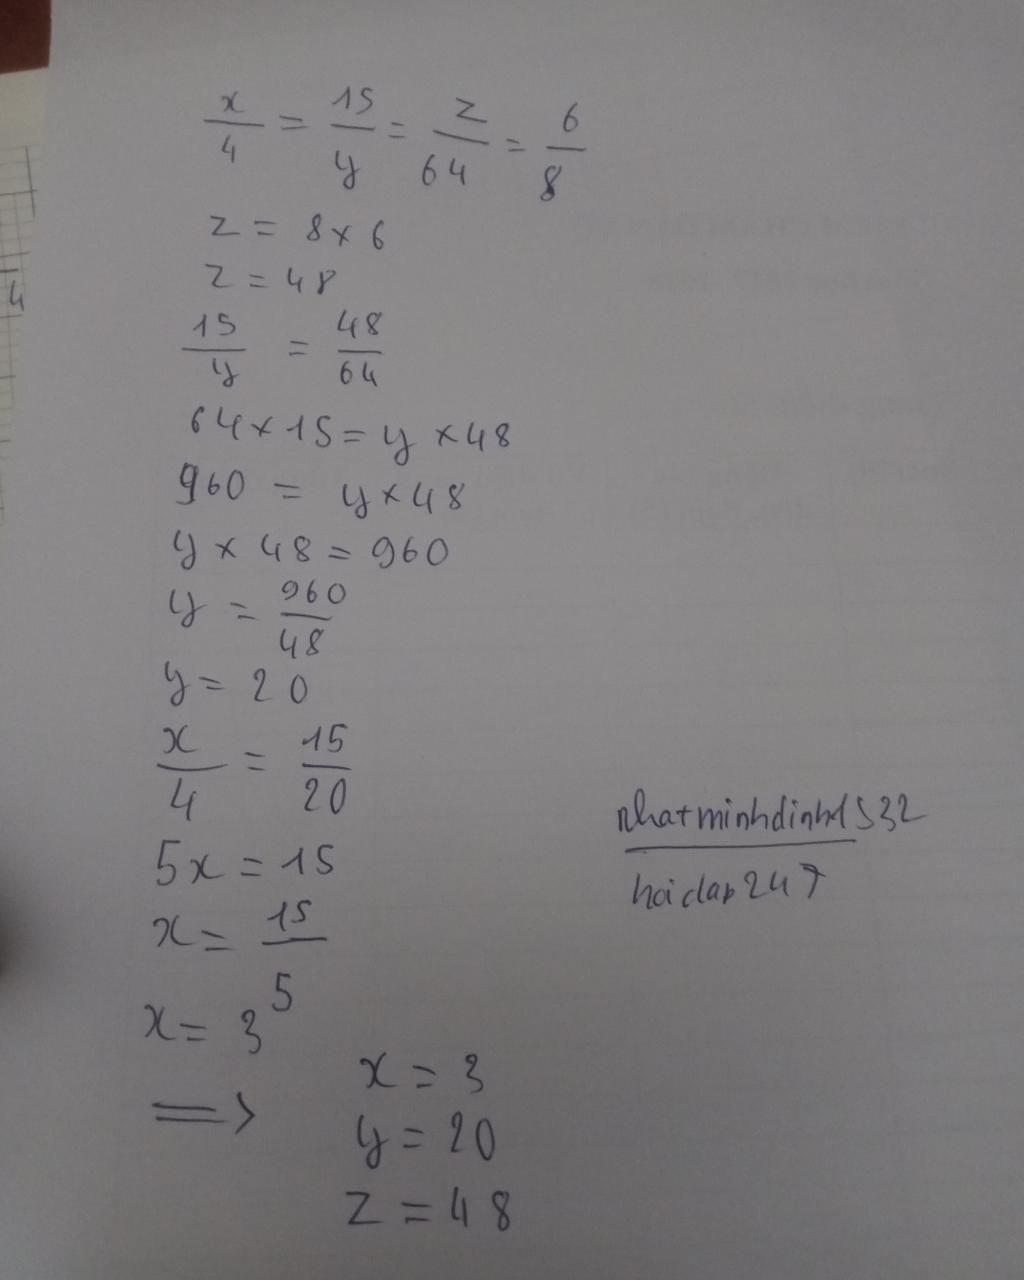 x/4 = 15/y = z/64 = 6/8
z = 8 × 6
z = 48
15/y = 48/64
64 × 15 = y × 48
960 = y × 48
y × 48 = 960
y = 960/48
y = 20
x/4 = 15/20
5x = 15
x = 15/5
x = 3
⟹ x = 3
y = 20
z = 48
nhatminhdinh1532
hoidap247
4